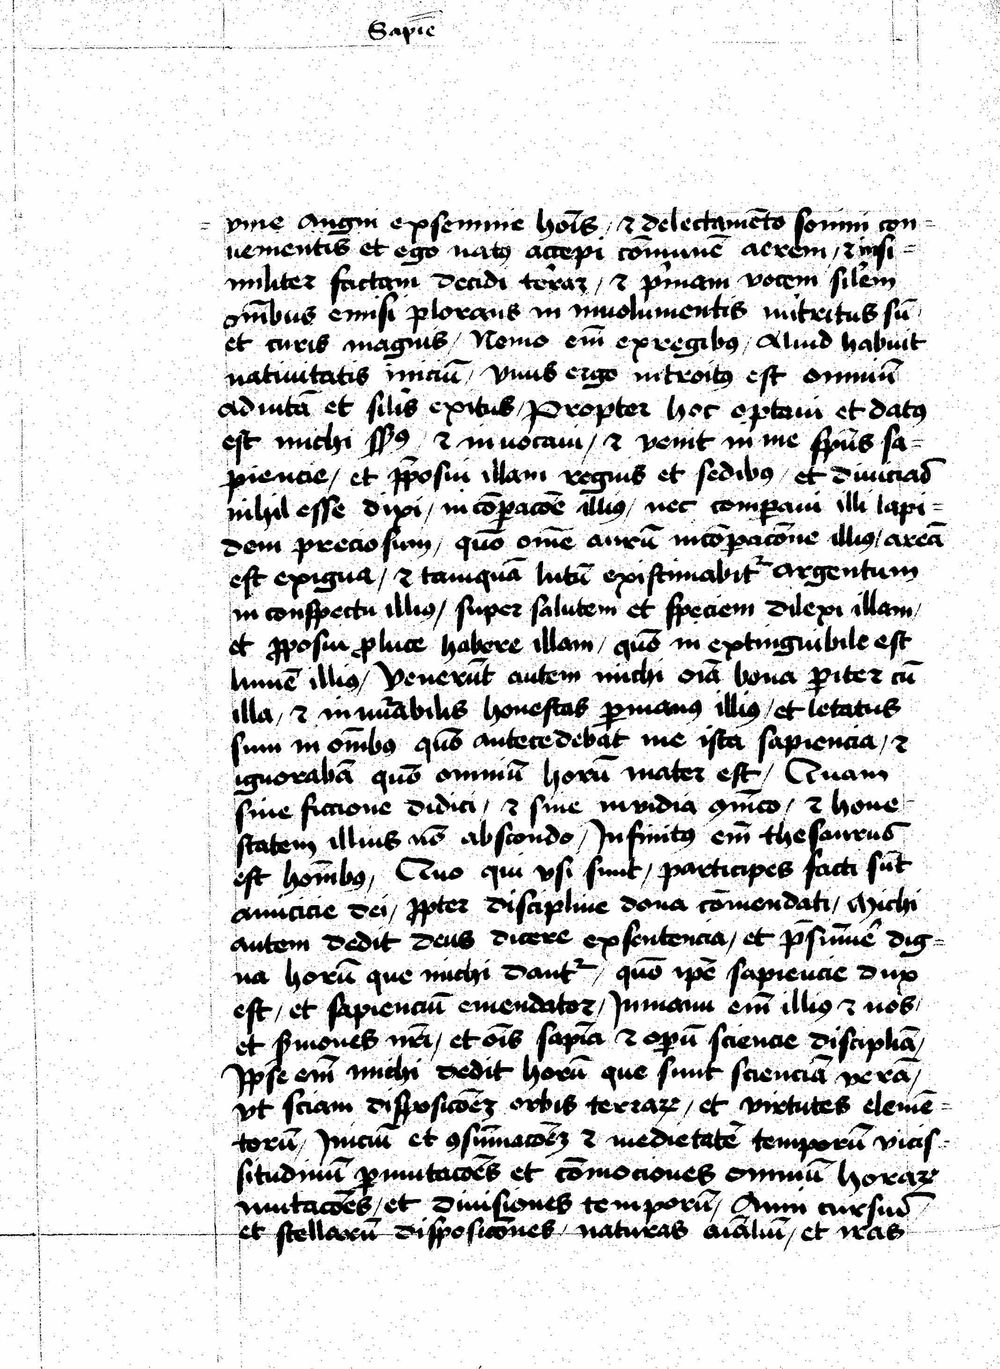 Sapie͞
gine augni ex semine ho͞is / ⁊ delectame͞to sonni con=
uenientis et ego natꝯ accepi co͞mune͞ aerem / ⁊ insi=
militer factam decidi terraꝫ / ⁊ primam vocem sile͞m
om͞ibus emisi plorans in inuolumentis nutritus su͞
et curis magnis / Nemo em͞ ex regibꝯ / Aliud habuit
natiuitatis iniciu͞ / Vnus ergo introitꝯ est omniu͞
ad uita͞ et sil͞is exitus / Propter hoc optaui et datꝯ
est michi sṣꝯ / ⁊ inuocaui / ⁊ venit in me sp͞us sa=
piencie / et p͞posui illam regnis et sedibꝯ / et diuicias
nihil esse dixi / in co͞ꝑaco͞e illiꝯ / nec comꝑaui illi lapi=
dem preciosum / quo͞ om͞e auru͞ in co͞ꝑaco͞ne illiꝯ / arena͞
est exigua / ⁊ tamqua͞ lutu͞ existimabit᷑ argentum
in conspectu illiꝯ / super salutem et speciem dilexi illam /
et ꝓposui ꝓ luce habere illam / quo͞ inextinguibile est
lume͞ illiꝯ / Veneru͞t autem michi o͞ia bona ꝑiter cu͞
illa / ⁊ innu͞abilis honestas ꝑ manus illiꝯ / et letatus
sum in om͞ibꝯ quo͞ antecedebat me ista sapiencia / ⁊
ignoraba͞ quo͞ omniu͞ horu͞ mater est / Quam
sine ficcione didici / ⁊ sine inuidia ꝯm͞ico / ⁊ hone=
statem illius no͞ abscondo / Infinitꝯ em͞ thesaurus
est hom͞ibꝯ / Quo qui vsi sunt / participes facti su͞t
amicicie dei / ꝓpter discipline dona co͞mendati / Michi
autem dedit deus dicere ex sentencia / et p͞sum͞e͞ dig=
na horu͞ que michi dant᷑ / quo͞ ip͞e sapiencie dux
est / et sapienciu͞ emendator / In manu em͞ illiꝯ ⁊ nos /
et s͞mones nr͞i / et o͞is sapi͞a ⁊ opꝑu͞ sciencie disciplia͞ /
Ipse em͞ michi dedit horu͞ que sunt sciencia͞ vera͞ /
vt sciam disposico͞eꝫ orbis terraꝝ / et virtutes eleme͞=
toru͞ / Iniciu͞ et ꝯsu͞maco͞eꝫ ⁊ medietate͞ temporu͞ vicis=
situdinu͞ ꝑmutaco͞es et co͞mociones omniu͞ horaꝝ
mutaco͞es / et diuisiones temporu͞ / Anni cursus
et stellaru͞ disposico͞nes / naturas ai͞aliu͞ / et iras